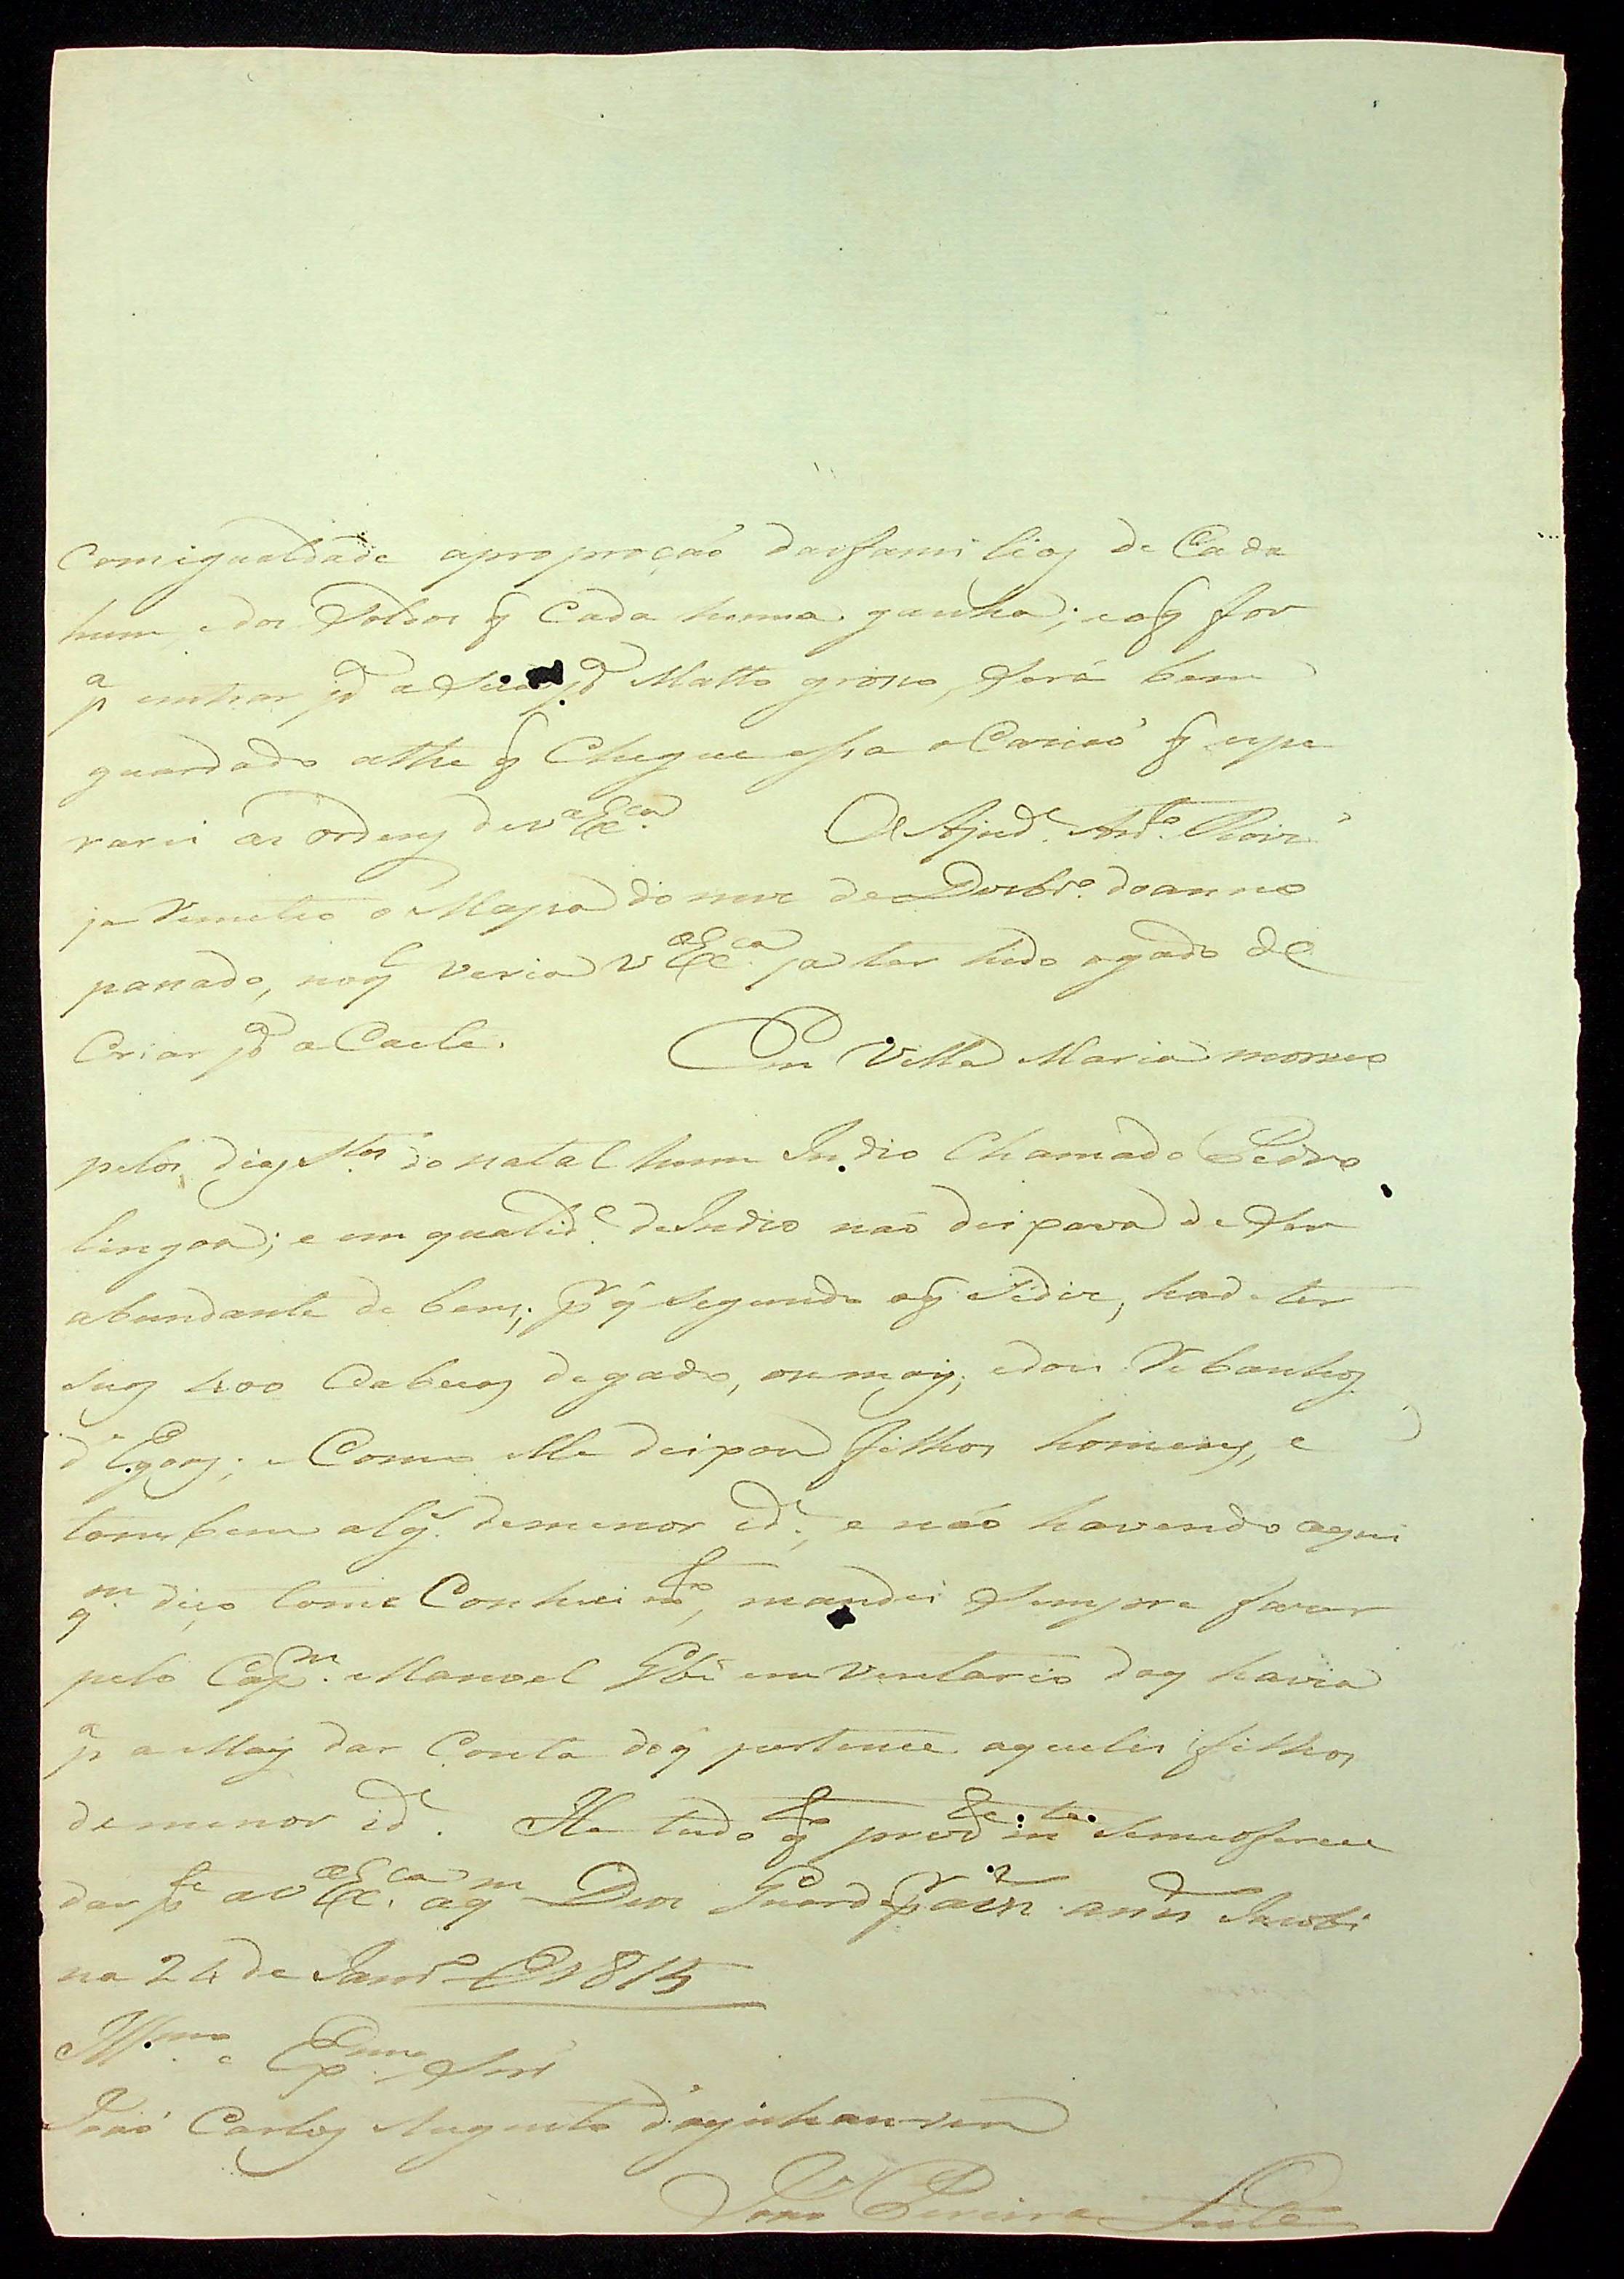 Com igualdade apropoção das familias de Cada
hum, e dos Soldos q̃ Cada huma ganha; e oq̃ for
pª entrar Matto groso, será bem
guardado athe q̃ Chegue essa o q̃ espe
rarei as ordens de Vª Exca. O Ajude. Anto.
ja Remeteo o Mapa do mez de Dezbro. do anno
pasado, noq̃ veria V Exca. ja ter hido o gado de
Criar
Em Villa Maria morreo
pelos dias Stos. do natal hum Indio Chamado Pedro
lingoa; e em qualide. de Indio não deixava de ser
abundante de bens; pr q̃ segundo oq̃ se diz, hade ter
suas 400 Cabeças de gado, ou mais, e dois Rebanhos
d'Egoas; e Como elle deixou filhos homens, e
tambem alg̃s. de menor ide., e não havendo aqui
qm. diso tome Conhecimto, mandei sempre fazer
pelo Capm. Manoel emventario doq̃ havia
pª a May dar Conta doq̃ pertence aqueles filhos
de menor ide. He tudo q̃to prezte.mte. se me oferece
dar pte a V Exca. aqm Deos Guarde pr ms. ans. Jacobi
na 24 de Janro. E 1815
Illmo. e Exmo. Snr
João Carlos Augusto d'Oyenhausen
João Pereira Leite